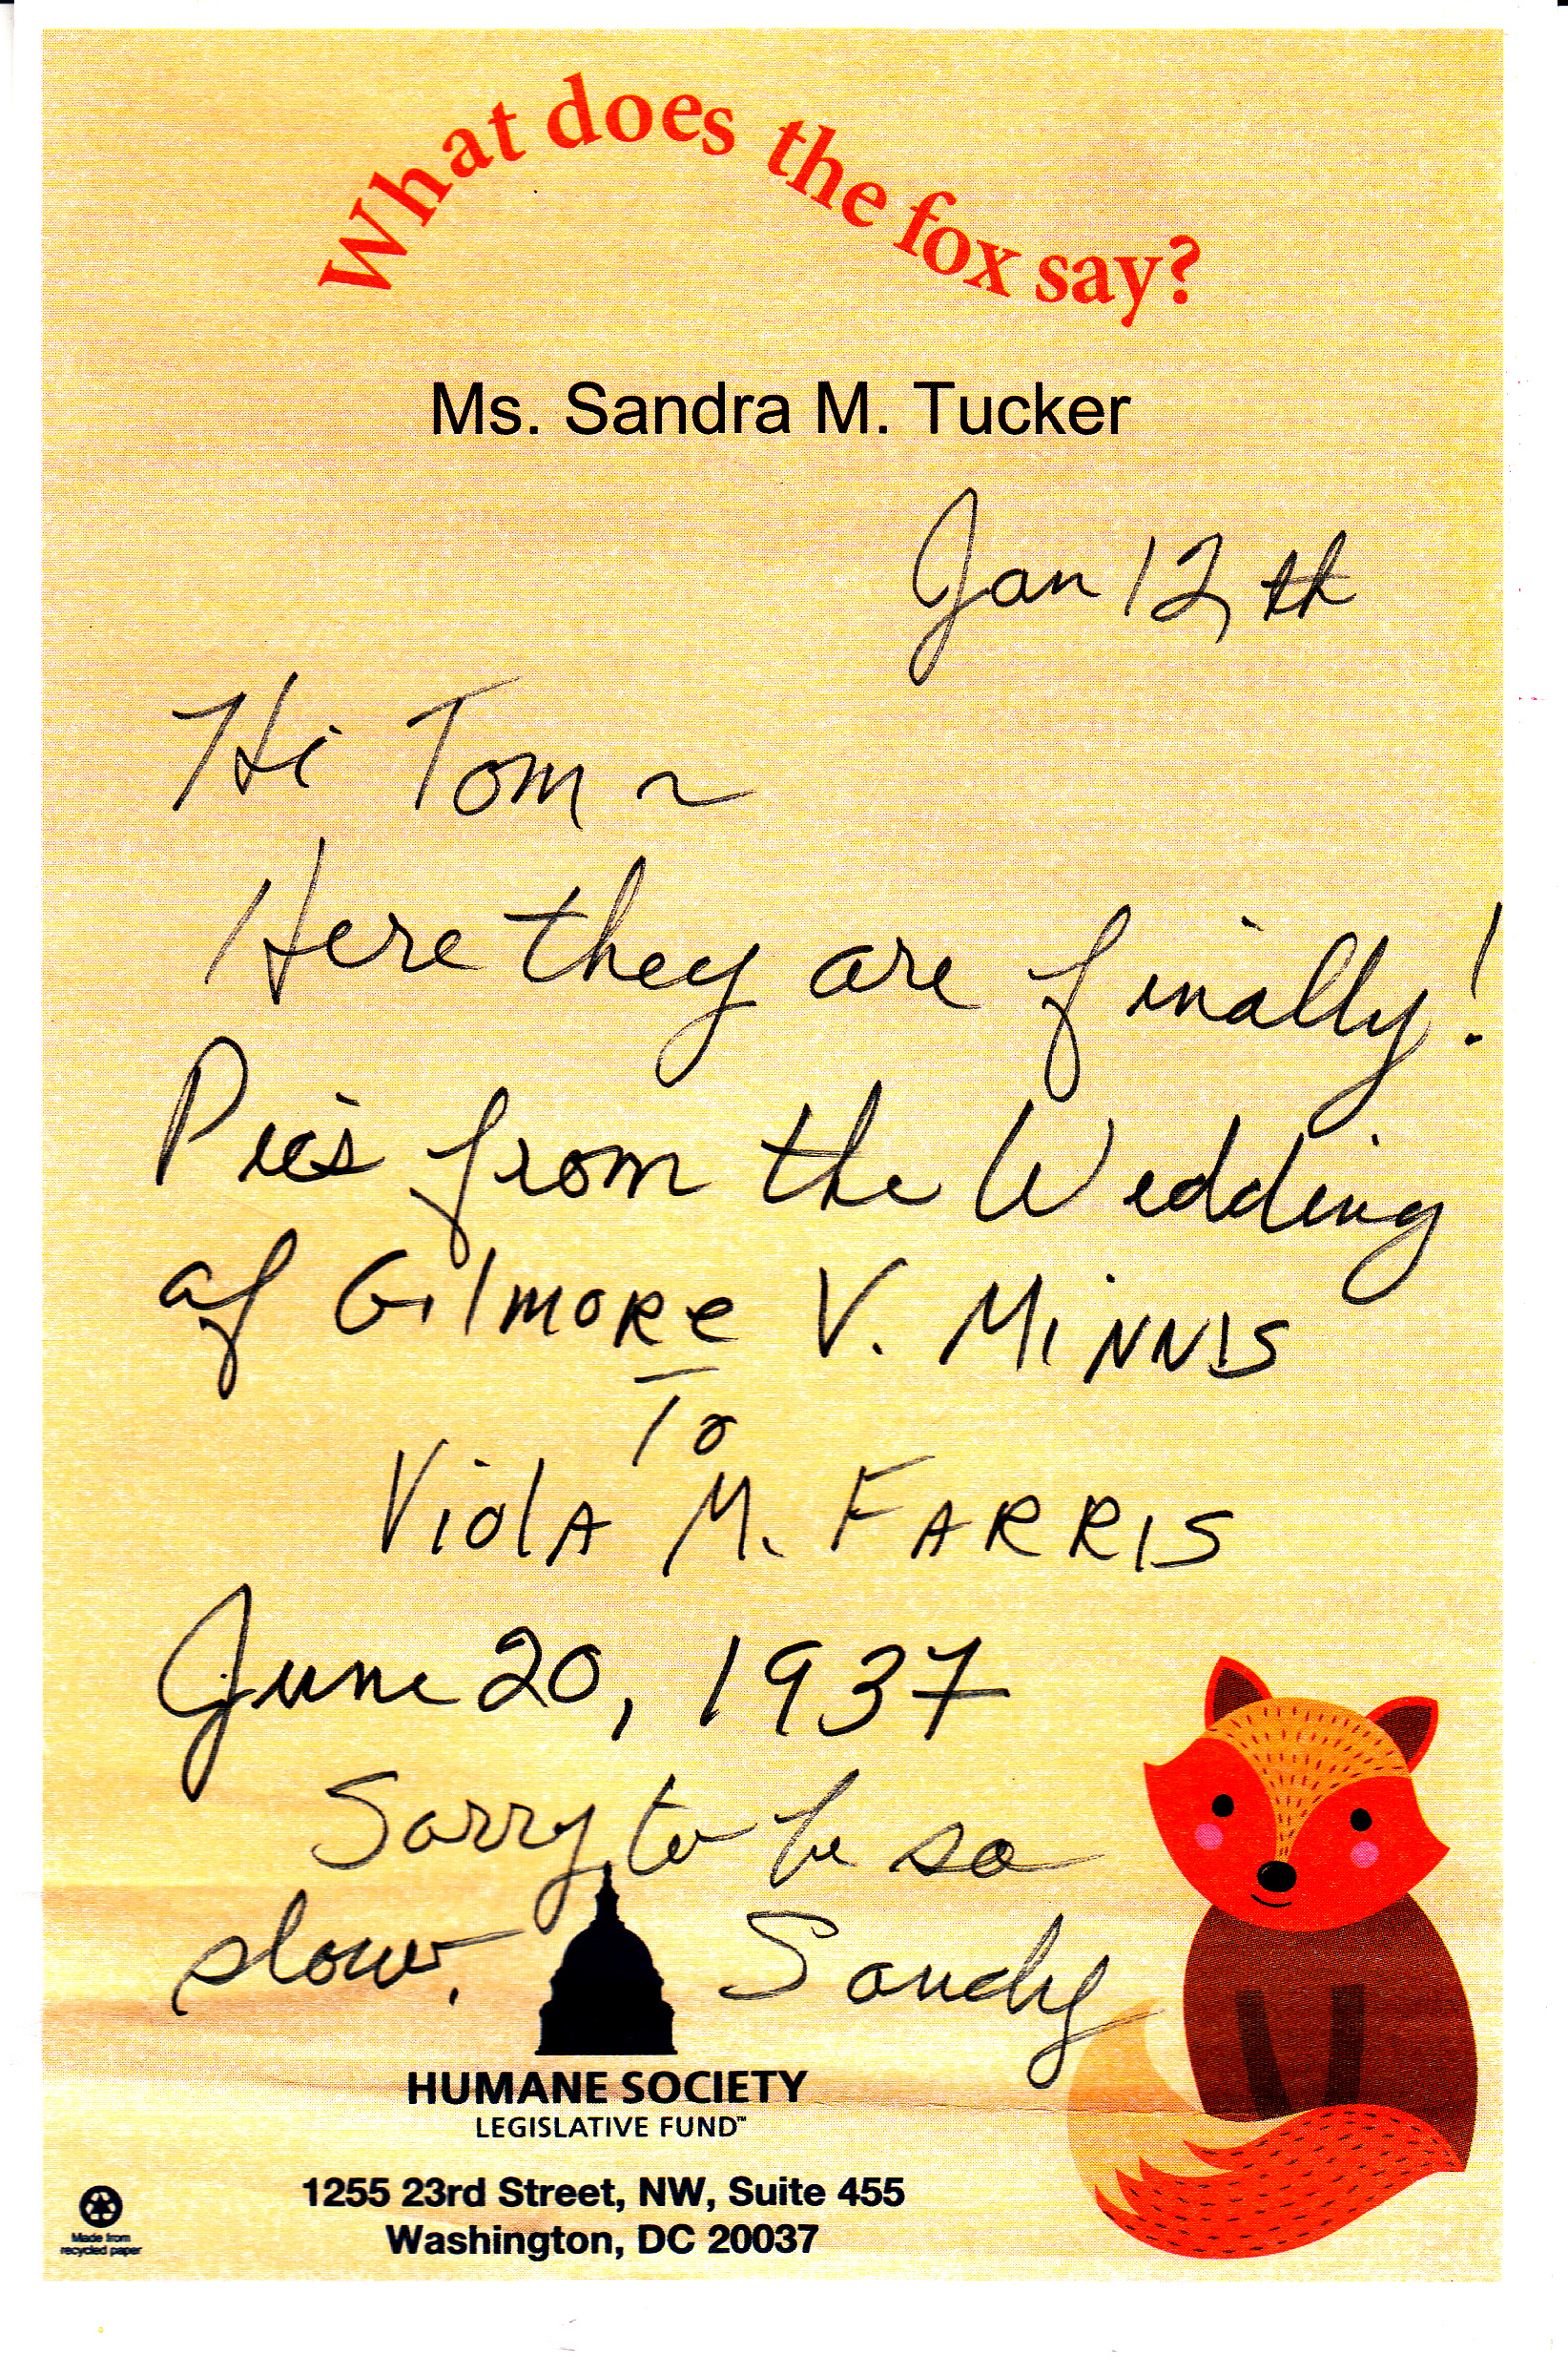 What does the fox say?
Ms. Sandra M. Tucker
Jan 12th
Hi Tom ~
Here they are finally!
Pics from the Wedding
of Gilmore V. Minnis
To
Viola M. FARRIS
June 20, 1937
Sorry to be so
slow. Sandy
HUMANE SOCIETY
LEGISLATIVE FUND™
1255 23rd Street, NW, Suite 455
Washington, DC 20037
Made from
recycled paper